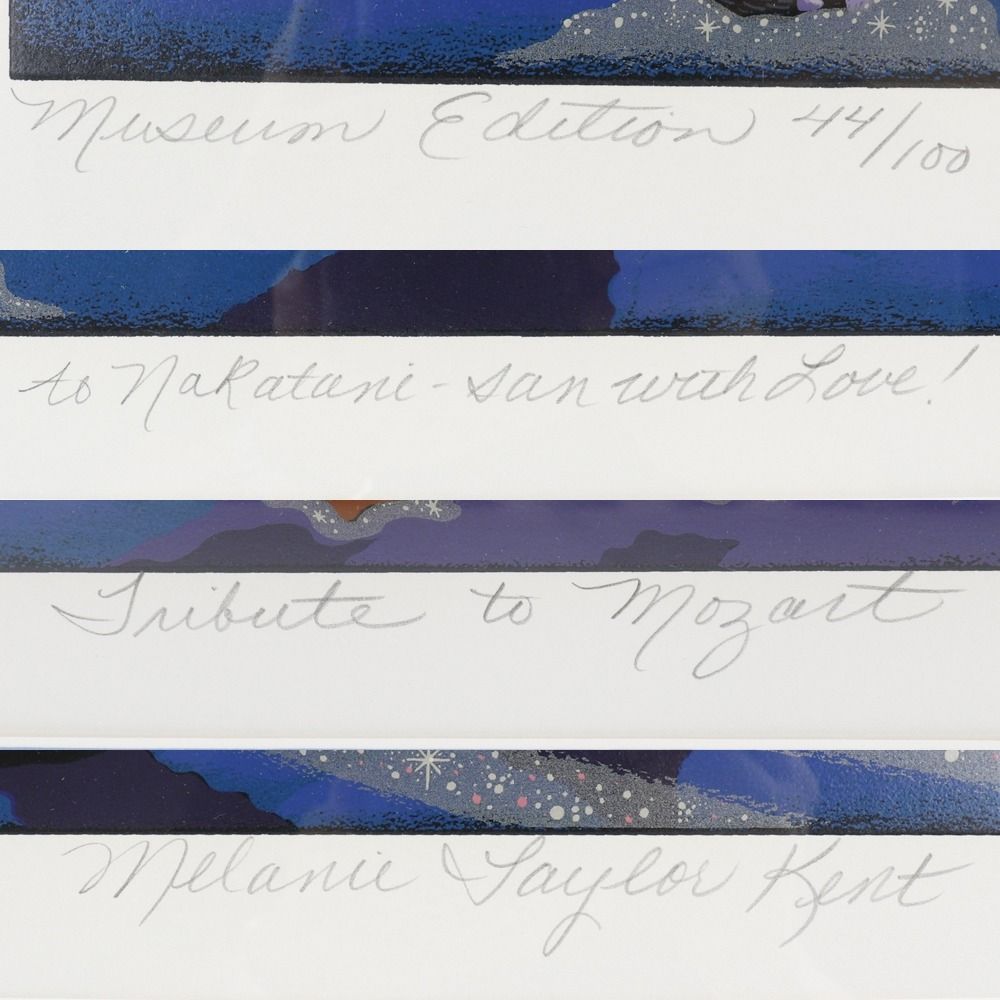 Museum Edition 44/100
to Nakatani-san with Love!
Tribute to Mozart
Melanie Taylor Kent